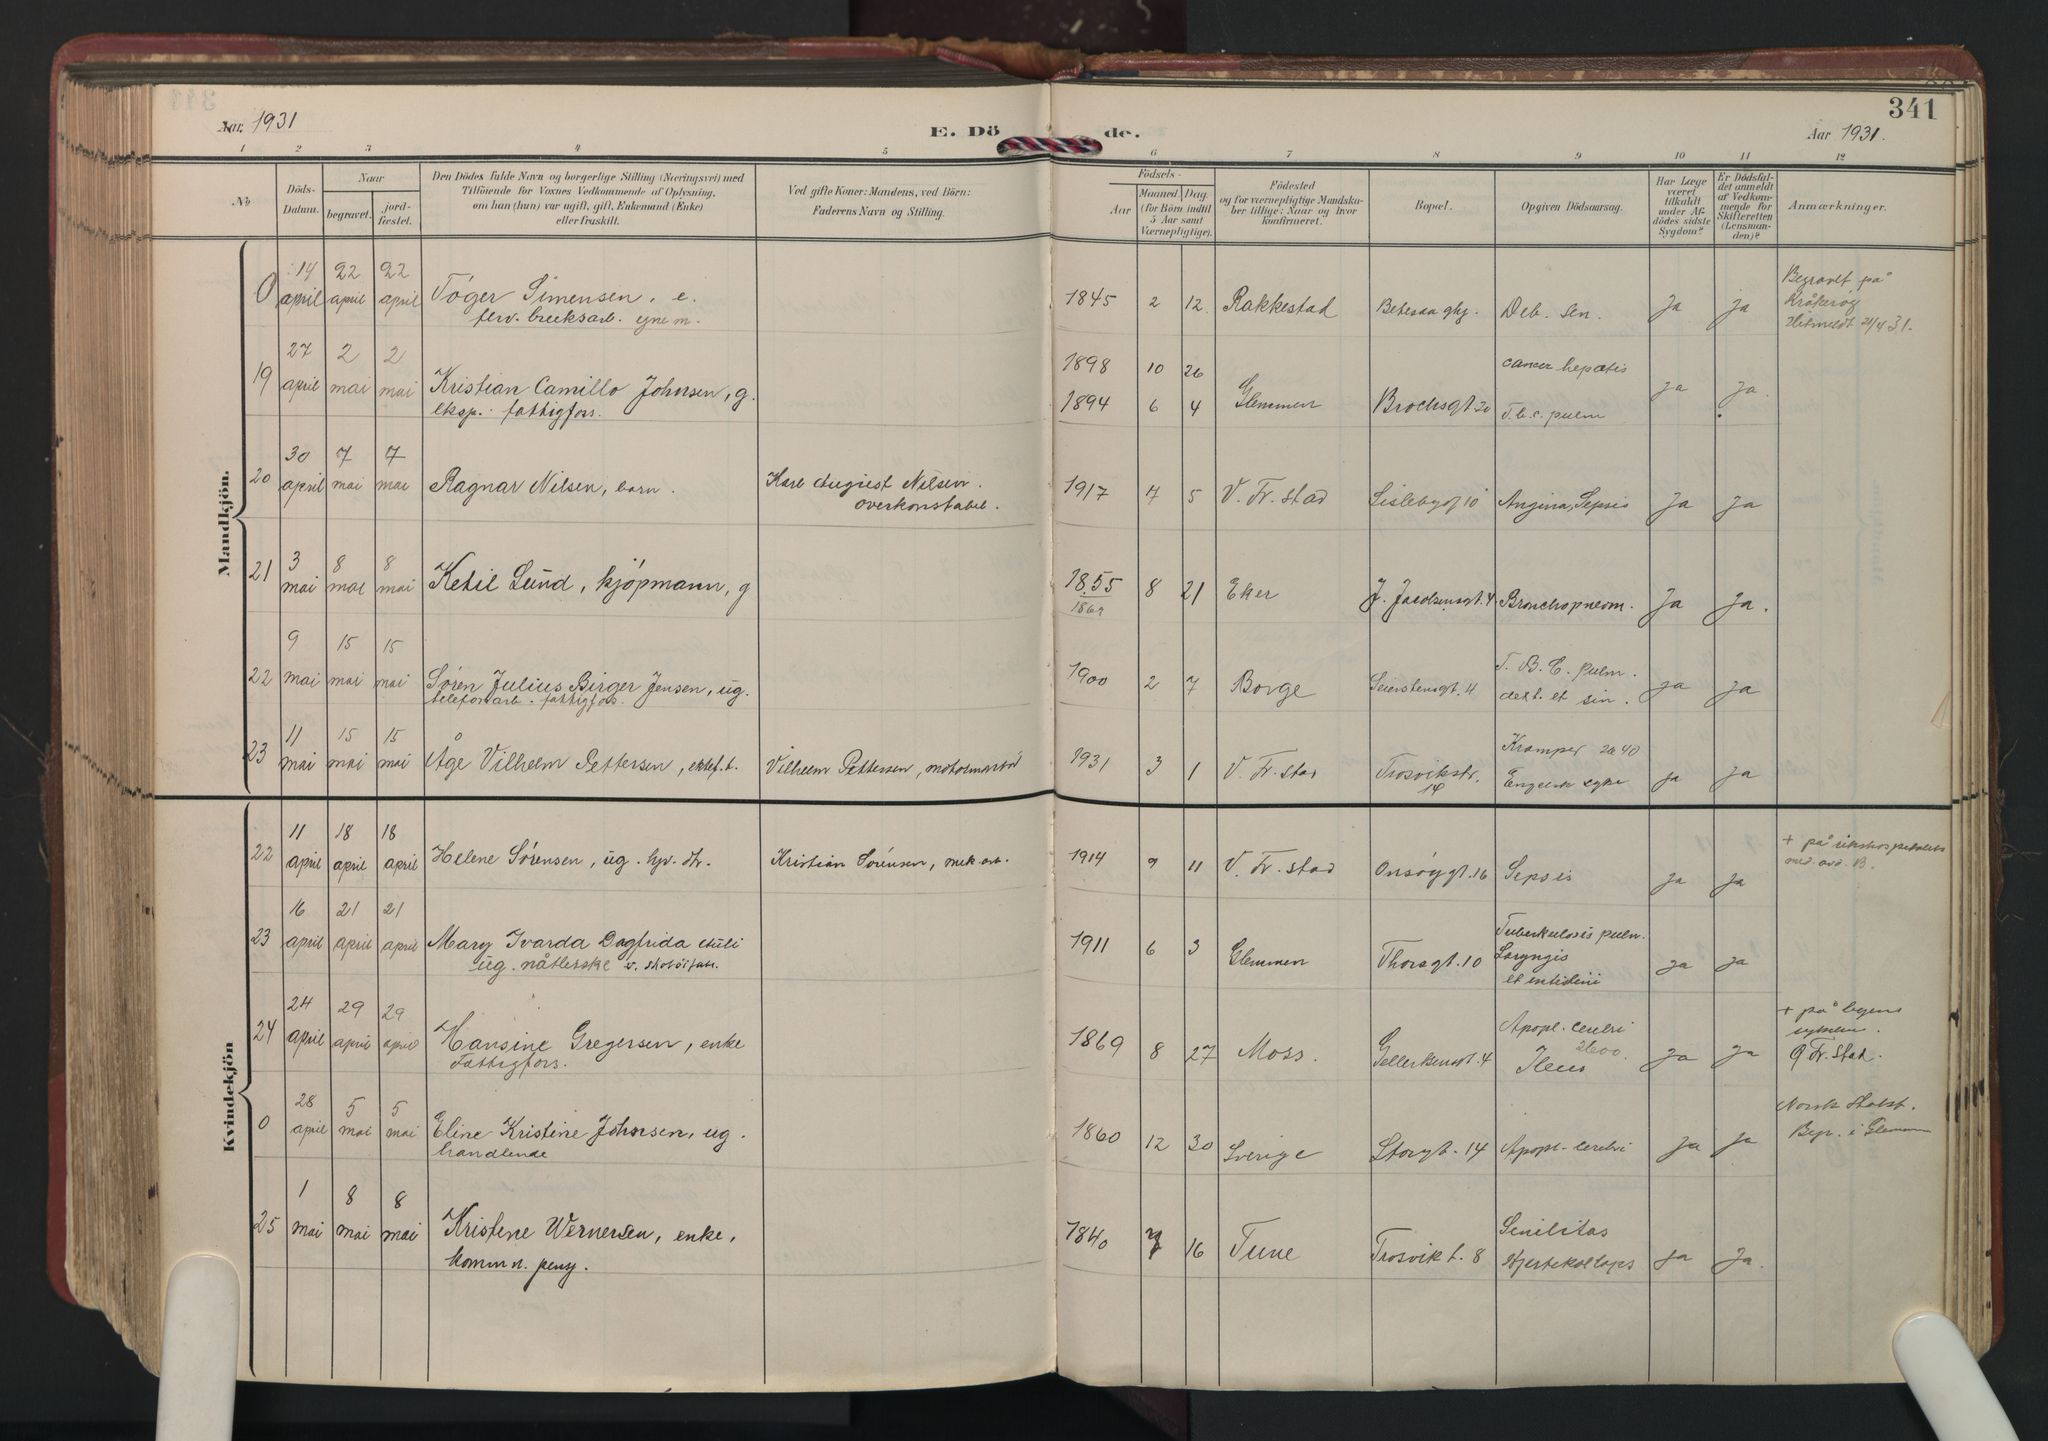 Aar. 1931
E. Döde.
341
Aar 1931.
1 2 3 4 5 6 7 8 9 10 11 12
No
Döds-
Datum.
Naar
begravet.
jord-
fæstet.
Den Dödes fulde Navn og borgerlige Stilling (Næringsvei) med
Tilföiende for Voxnes Vedkommende af Oplysning,
om han (hun) var ugift, gift, Enkemand (Enke)
eller fraskilt.
Ved gifte Koner: Mandens, ved Börn:
Faderens Navn og Stilling.
Födsels-
Aar
Maaned. Dag.
(for Börn indtil
5 Aar samt
Værnepligtige).
Födested
og for værnepligtige Mandska-
ber tillige: Naar og hvor
konfirmeret.
Bopæl.
Opgiven Dödsaarsag.
Har Læge
været
tilkaldt
under Af-
dödes sidste
Sygdom?
Er Dödsfal-
det anmeldt
af Vedkom-
mende for
Skifteretten
(Lensman-
den)?
Anmærkninger.
Mandkjön.
0 14 april 22 april 22 april Töger Simensen, e. 1845 2 12 Rakkestad Deb. sen. Ja ja
Begravet på
Kråkeröy
21/4 31.
19 27 april 2 mai 2 mai Kristian Camillo Johnsen, g.
eksp. fattigfors.
1898 10 26 cancer hepatis
1894 6 4 Glemmen Brochsgt 20 T.b.c. pulm Ja Ja.
20 30 april 7 mai 7 mai Ragnar Nilsen, barn. Karl August Nilsen.
overkonstabel.
1917 7 5 V. Fr. stad Angina, Sepsis Ja Ja
21 3 mai 8 mai 8 mai Ketil Lund, kjöpmann, g 1855 8 21 Eker J. Jacobsensgt. 4 Bronchopneom. Ja Ja.
1869
22 9 mai 15 mai 15 mai Sören Julius Birger Jensen, ug.
telefonarb. fattigfors.
1900 2 7 Borge Seierstensgt. 4 T. B. C. pulm.
dext. et sin. Ja Ja
23 11 mai 15 mai 15 mai Åge Vilhelm Pettersen, ektef. f. Vilhelm Pettersen, 1931 3 1 V. Fr. stad Trosvikstr.
14
Kramper
Engelsk syke Ja Ja
Kvindekjön
22 11 april 18 april 18 april Helene Sörensen, ug. hv. dtr. Kristian Sörensen, mek. arb. 1914 9 11 V. Fr. stad Onsöygt. 16 Sepsis Ja Ja
+ på rikshospitalets
med. avd. B.
23 16 april 21 april 21 april Mary Ivarda Dagfrida
ug. nåtlerske v. skotöifabr.
1911 6 3 Glemmen Thorsgt. 10 Tuberkulosis pulm.
Laryngis
Ja Ja
24 24 april 29 april 29 april Hansine Gregersen, enke
Fattigfors.
1869 8 27 Moss. Gellertsensgt. 4 Apopl. cerebri
Ileus Ja Ja
+ på byens
sykehus.
Fr. stad.
0 28 april 5 mai 5 mai Eline Kristine Johnsen, ug.
handlende
1860 12 30 Sverige Storgt. 14 Apopl. cerebri Ja Ja
Norsk Statsb.
Begr. i Glemmen
25 1 mai 8 mai 8 mai Kristine Wernersen, enke,
komm. pens.
1840 7 16 Tune Trosvik t. 8 Senilitas
Hjertekollaps Ja Ja.